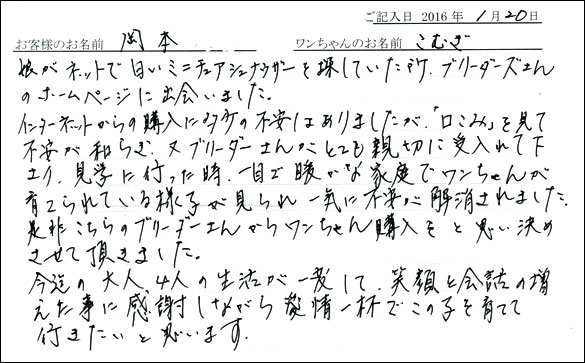 ご記入日 2016年 1月20日
お客様のお名前 岡本 ワンちゃんのお名前 こむぎ
娘がネットで白いミニチュアシュナウザーを探していた所、ブリーダーズさん
のホームページに出会いました。
インターネットからの購入に多少の不安はありましたが、「口こみ」を見て
不安が和らぎ、又ブリーダーさんがとても親切に受入れて下
さり、見学に行った時、一目で暖かな家庭でワンちゃんが
育てられている様子が見られ一気に不安が解消されました。
是非こちらのブリーダーさんからワンちゃん購入をと思い決め
させて頂きました。
今迄の大人4人の生活が一変して、笑顔と会話の増
えた事に感謝しながら愛情一杯でこの子を育てて
行きたいと思います。